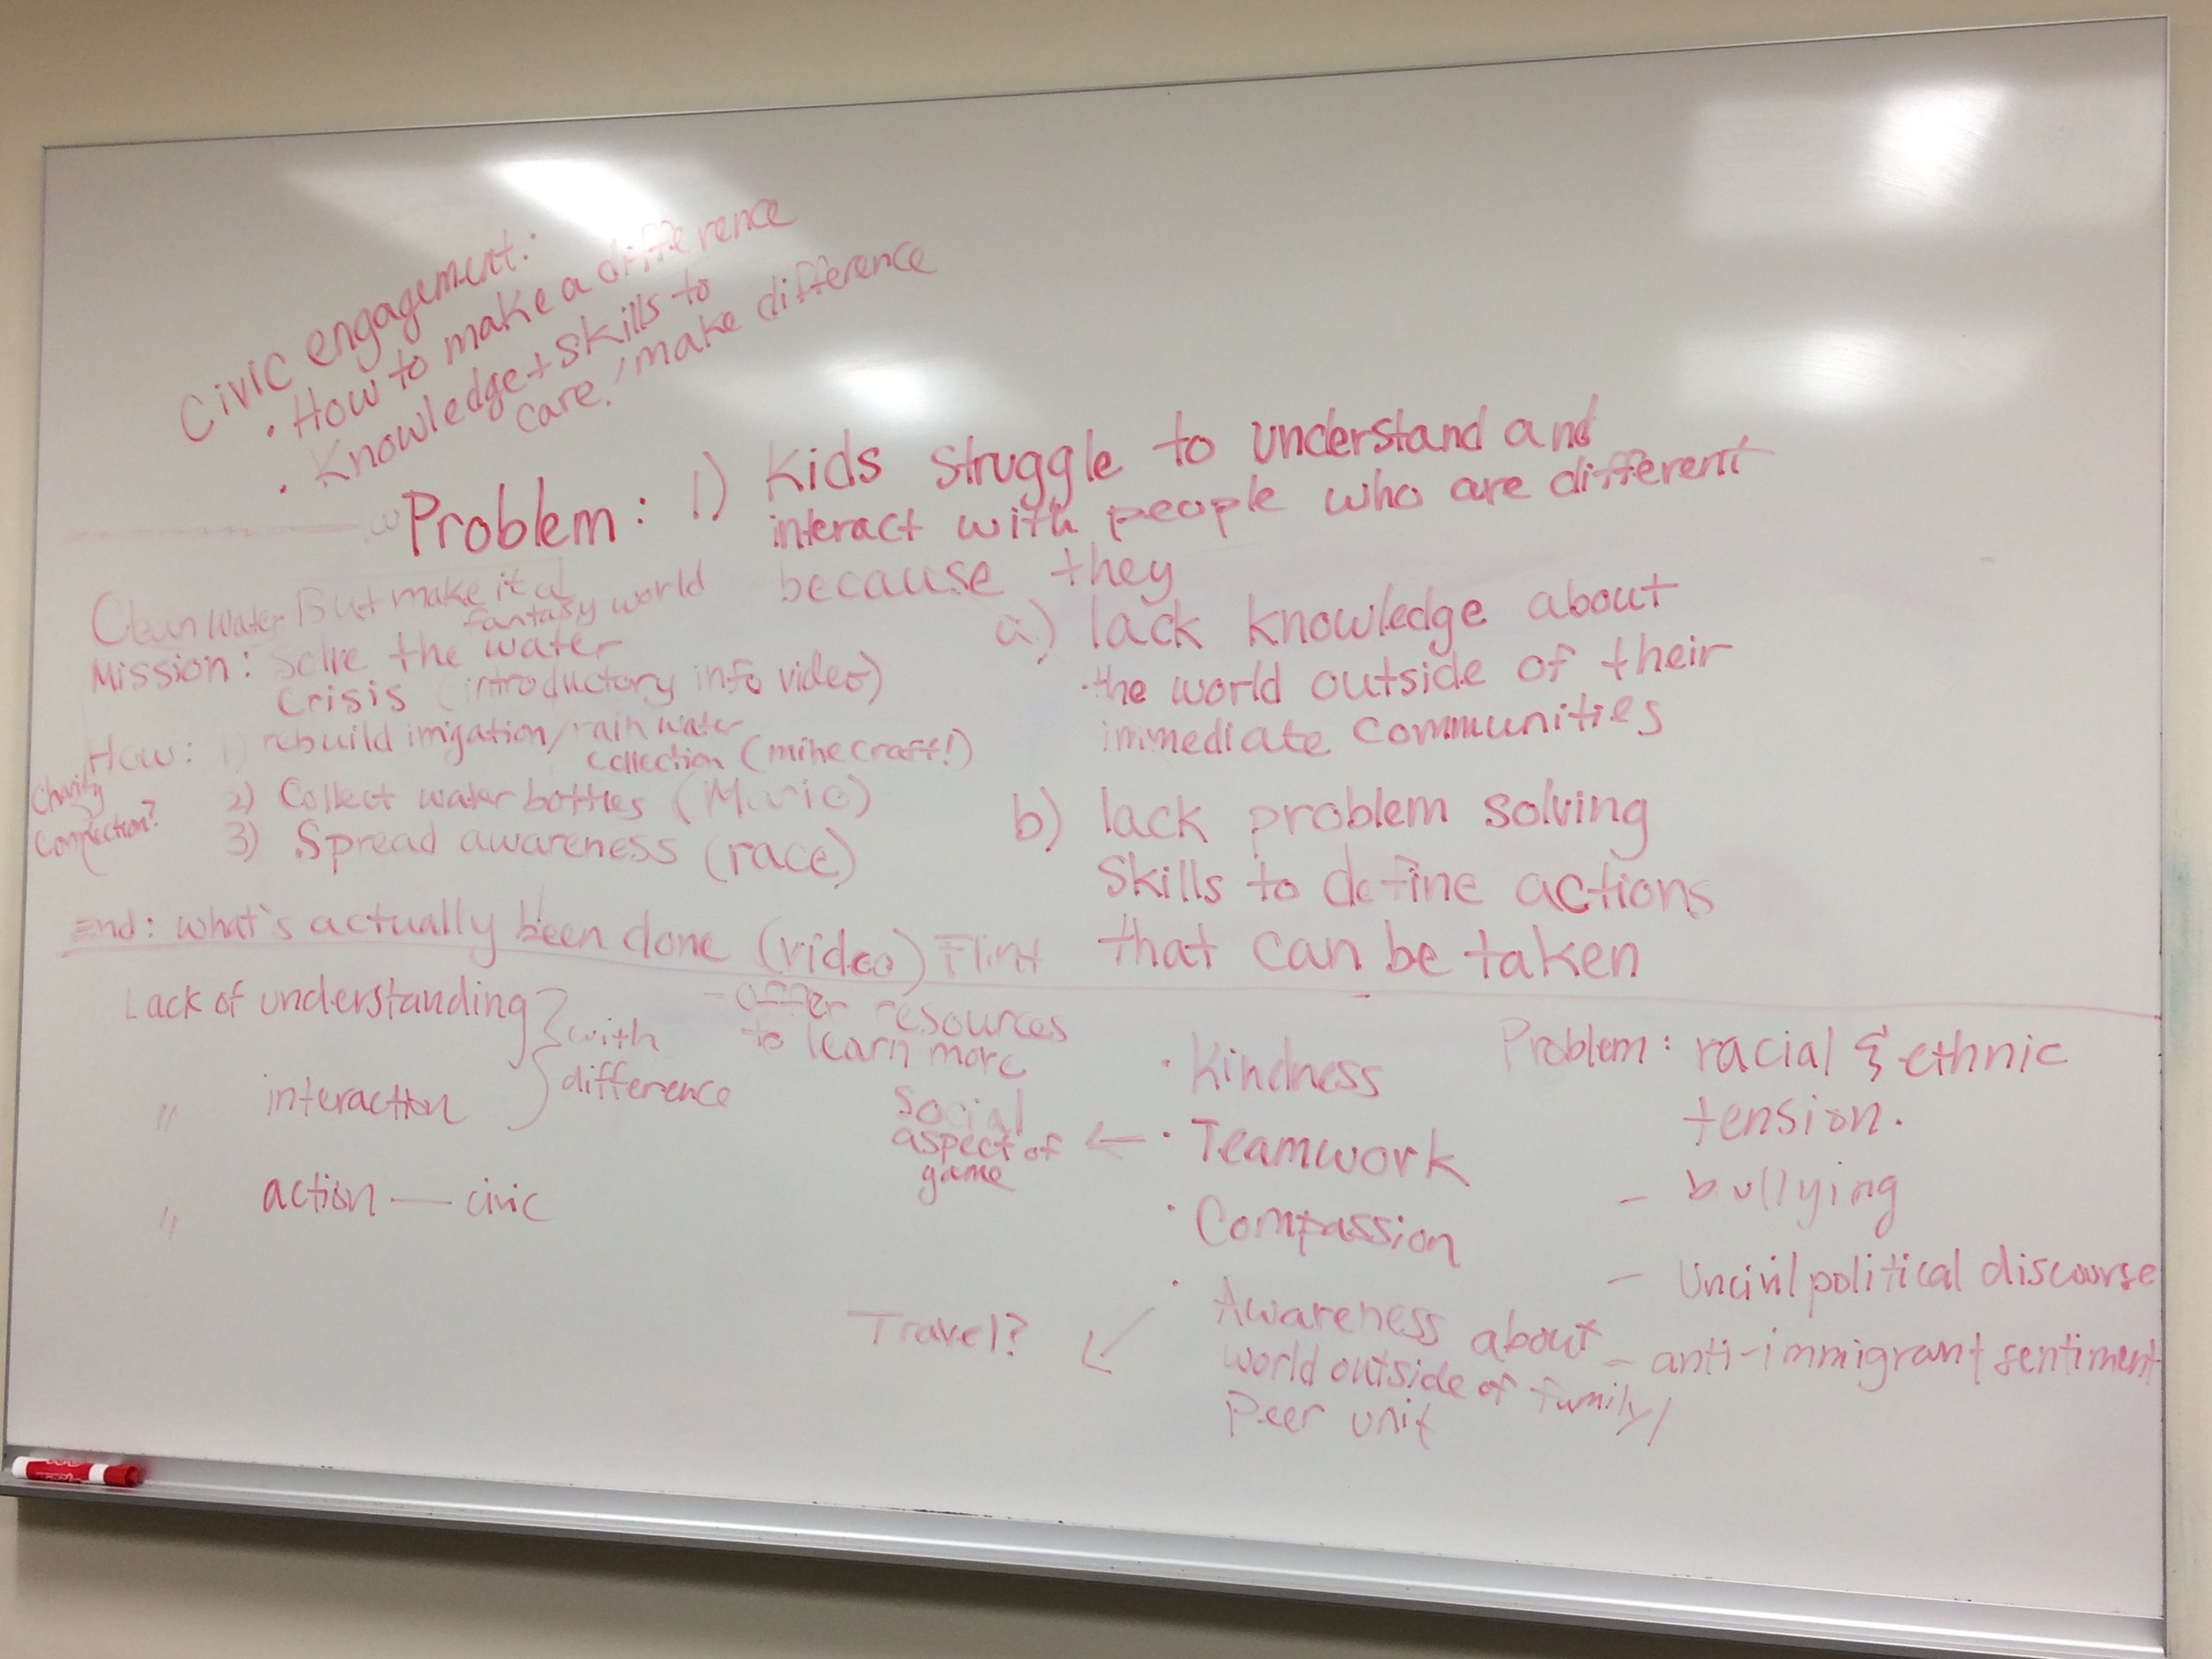 Civic engagement:
• How to make a difference
• Knowledge + skills to
care / make difference
Problem: 1) Kids struggle to understand and
interact with people who are different
because they
a) lack knowledge about
the world outside of their
immediate communities
b) lack problem solving
skills to define actions
that can be taken
Clean Water But make it a
fantasy world
Mission: Solve the water
Crisis (introductory info video)
How: 1) rebuild irrigation/rain water
collection (minecraft!)
2) Collect water bottles (Mario)
3) Spread awareness (race)
Charity
Connection?
End: what's actually been done (video) Flint
- offer resources
to learn more
Lack of understanding } with
" interaction } difference
" action — civic
• Kindness
Social
aspect of ← • Teamwork
game
• Compassion
• Awareness about
world outside of family/
Peer unit
Travel? ↙
Problem: racial & ethnic
tension.
- bullying
- Uncivil political discourse
- anti-immigrant sentiment